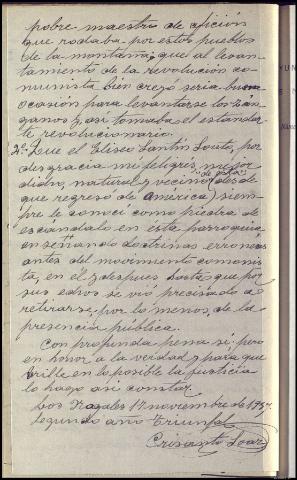 pobre maestro de afición
que rodaba por estos pueblos
de la montaña, que al levan-
tamiento de la revolución co-
munista bien creyó sería buena
ocasión para levantarse los zan-
ganos y así tomaba el estandar-
te revolucionario.
2º Que el Eliseo Santín Souto, por
desgracia mi feligrés, me por
dicho, natural y vecino de esta (desde
que regresó de América) siem-
pre le conocí como piedra de
escandalo en esta parroquia
enseñando doctrinas erroneas
antes del movimiento comunis-
ta, en el y despues hasta que por
sus edros se vió precisado a
retirarse por lo menos, de la
presencia publica.
Con profunda pena si; pero
en honor a la verdad y para que
brille en lo posible la justicia
lo hago así constar.
Los Nogales 17 noviembre de 1937.
Segundo año Triunfal
Crisanto